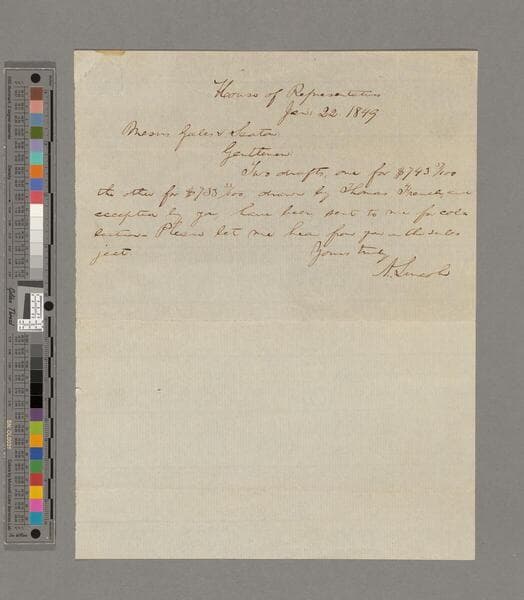 House of Representatives
Jan: 22. 1849
Messrs Gales & Seaton
Gentlemen
Two drafts, one for $743
the other for $733 drawn by Thomas French, and
accepted by you, have been sent to me for col-
lection. Please let me hear from you on the sub-
ject
Yours truly
A. Lincoln